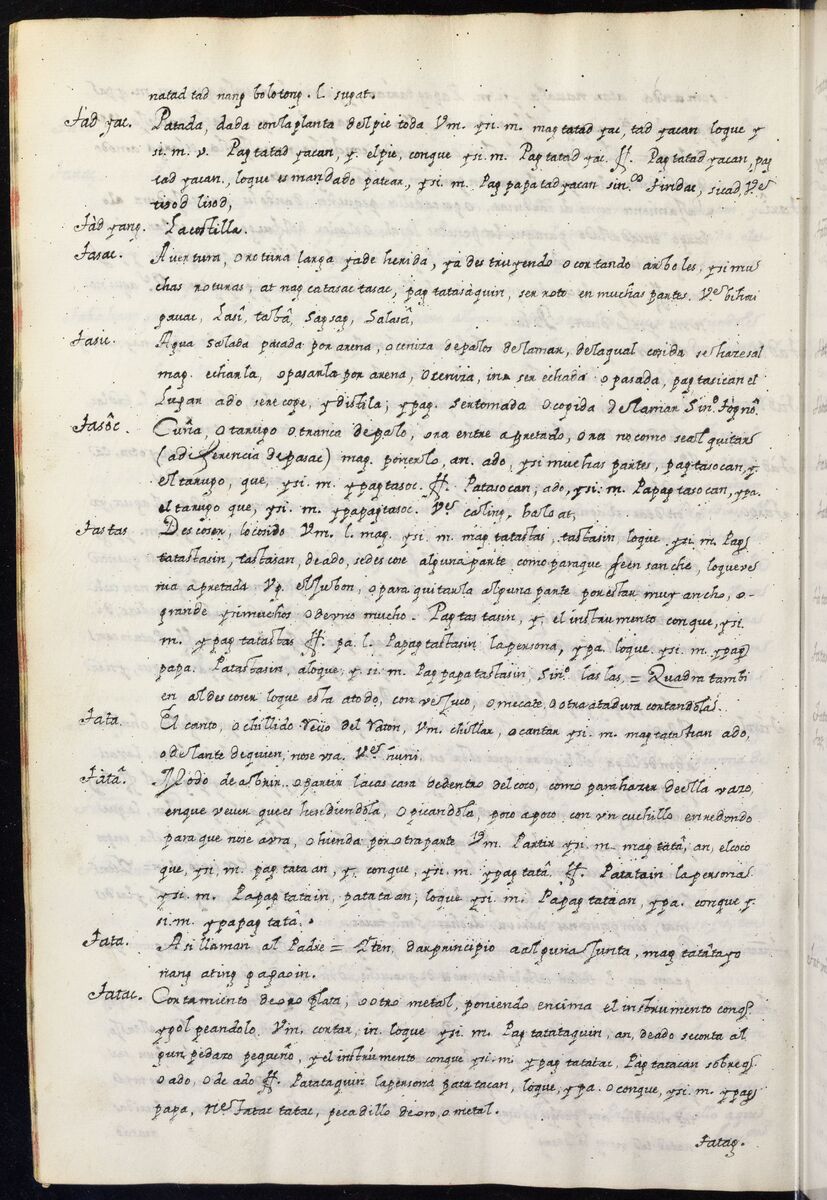 natad tad nang bolotong. l. sugat.
Tàd yac. Patada, dada conlaplanta delpie toda Vm. ysi. m. mag tatad yac, tad yacan loque y
si. m. v. Pag tatad yacan, y. elpie, conque ysi. m. Pag tatad yac. #. Pag tatad yacan, pag
tad yacan., loque es mandado patear., ysi. m. Pag papa tad yacan sin.co Tindac, sicad, V.es
tisod lisod,
Tàd yang. La costilla.
Tasac. Avertura, o rotura larga yade herida, ya des truyendo o cortando arboles, ysi mu
chas roturas, at nag catasac tasac, pag tatasaquin, ser roto en muchas partes. V.es bihai
pauac, Lasî, tabâ, Sagsag, Salasâ,
Tasic. Agua salada pasada por arena, o ceniza de palos delamar, delaqual cogida sehaze sal
mag. echarla, o pasarla por arena, o ceniza, in. ser echada o pasada, pag tasican el
Lugar ado sere coge, y distila; ypag. ser tomada o cogida delamar Sin.o Tògnô.
Tasôc. Cuña, o tarugo o tranca depalo, ora entre apretado, ora no como sealquitar
(adi ferencia de pasac) mag. ponerlo, an. ado, ysi muchas partes, pag tasocan, y.
el tarugo, que, ysi. m. ypag tasoc. #. Patasocan; ado, ysi. m. Papag tasocan, ypa.
el tarugo que, ysi. m. ypapag tasoc. V.es caling, balo at,
Tas tas Descoser, lo cosido Vm. l. mag. ysi. m. mag tatastas, tastasin, loque ysi. m. Pag
tatastasin, tastasan, deado, sedescose alguna parte como paraque seen sanche, loqueve
nia apretada Vg. el Jubon, o para quitarla alguna parte por estar muy ancho, o
grande ysimuchos o devno mucho. Pag tas tasin, y. el instrumento conque, ysi.
m. ypag tatastas #. pa. l. Papag tastasin la persona, ypa. loque ysi. m. ypag
papa. Patastasin, aloque, ysi. m. Pag papa tastasin, Sin.o las las, = Quadra tambi
en al descoser loque esta atado, con vejuco, o mecate, o otra atadura cortandola.
Tata. El canto, o chillido del Raton, Vm. chillar, o cantar ysi. m. mag tatatian ado,
o delante dequien, nose vsa. V.es huni.
Tàtâ. Modo de abrir, o partir lacascara dedentro del coco, como para hazer deella vazo,
enque vever que es hendiendola, o picandola, poco apoco con vn cuchillo en redondo
paraque nose avra, o hienda por otra parte Vm. Partir ysi. m. mag tatâ, an, elcoco
que, ysi, m. pag tata an, y. conque, ysi. m. ypag tatâ. #. Patatain la persona
ysi. m. Papag tatain, patata an; loque ysi. m. Papag tataan, ypa. conque y.
si. m. ypapag tatâ.
Tata. Asi llaman al Padre = Yten, dar principio aalguna Junta, mag tatàtayo
nang ating gagaoin.
Tatac. Cortamiento deoro plata, o otro metal, poniendo encima el instrumento conq.
ygolpeandolo. Vm. cortar, in. loque ysi. m. Pag tatataquin, an, deado secorta al
gun pedazo pequeño, y el instrumento conque ysi. m. ypag tatatac, Pag tatacan sobreq.
o ado, o de ado #. Patataquin lapersona patatacan, loque, ypa. o conque, ysi. m. ypag
papa, Tatac tatac, pecadillo de oro, o metal.
Tatag.